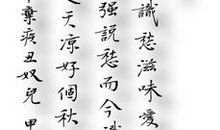 識愁滋味愛
强説愁而今識
天凉好個秋
棄疾丑奴兒 甲